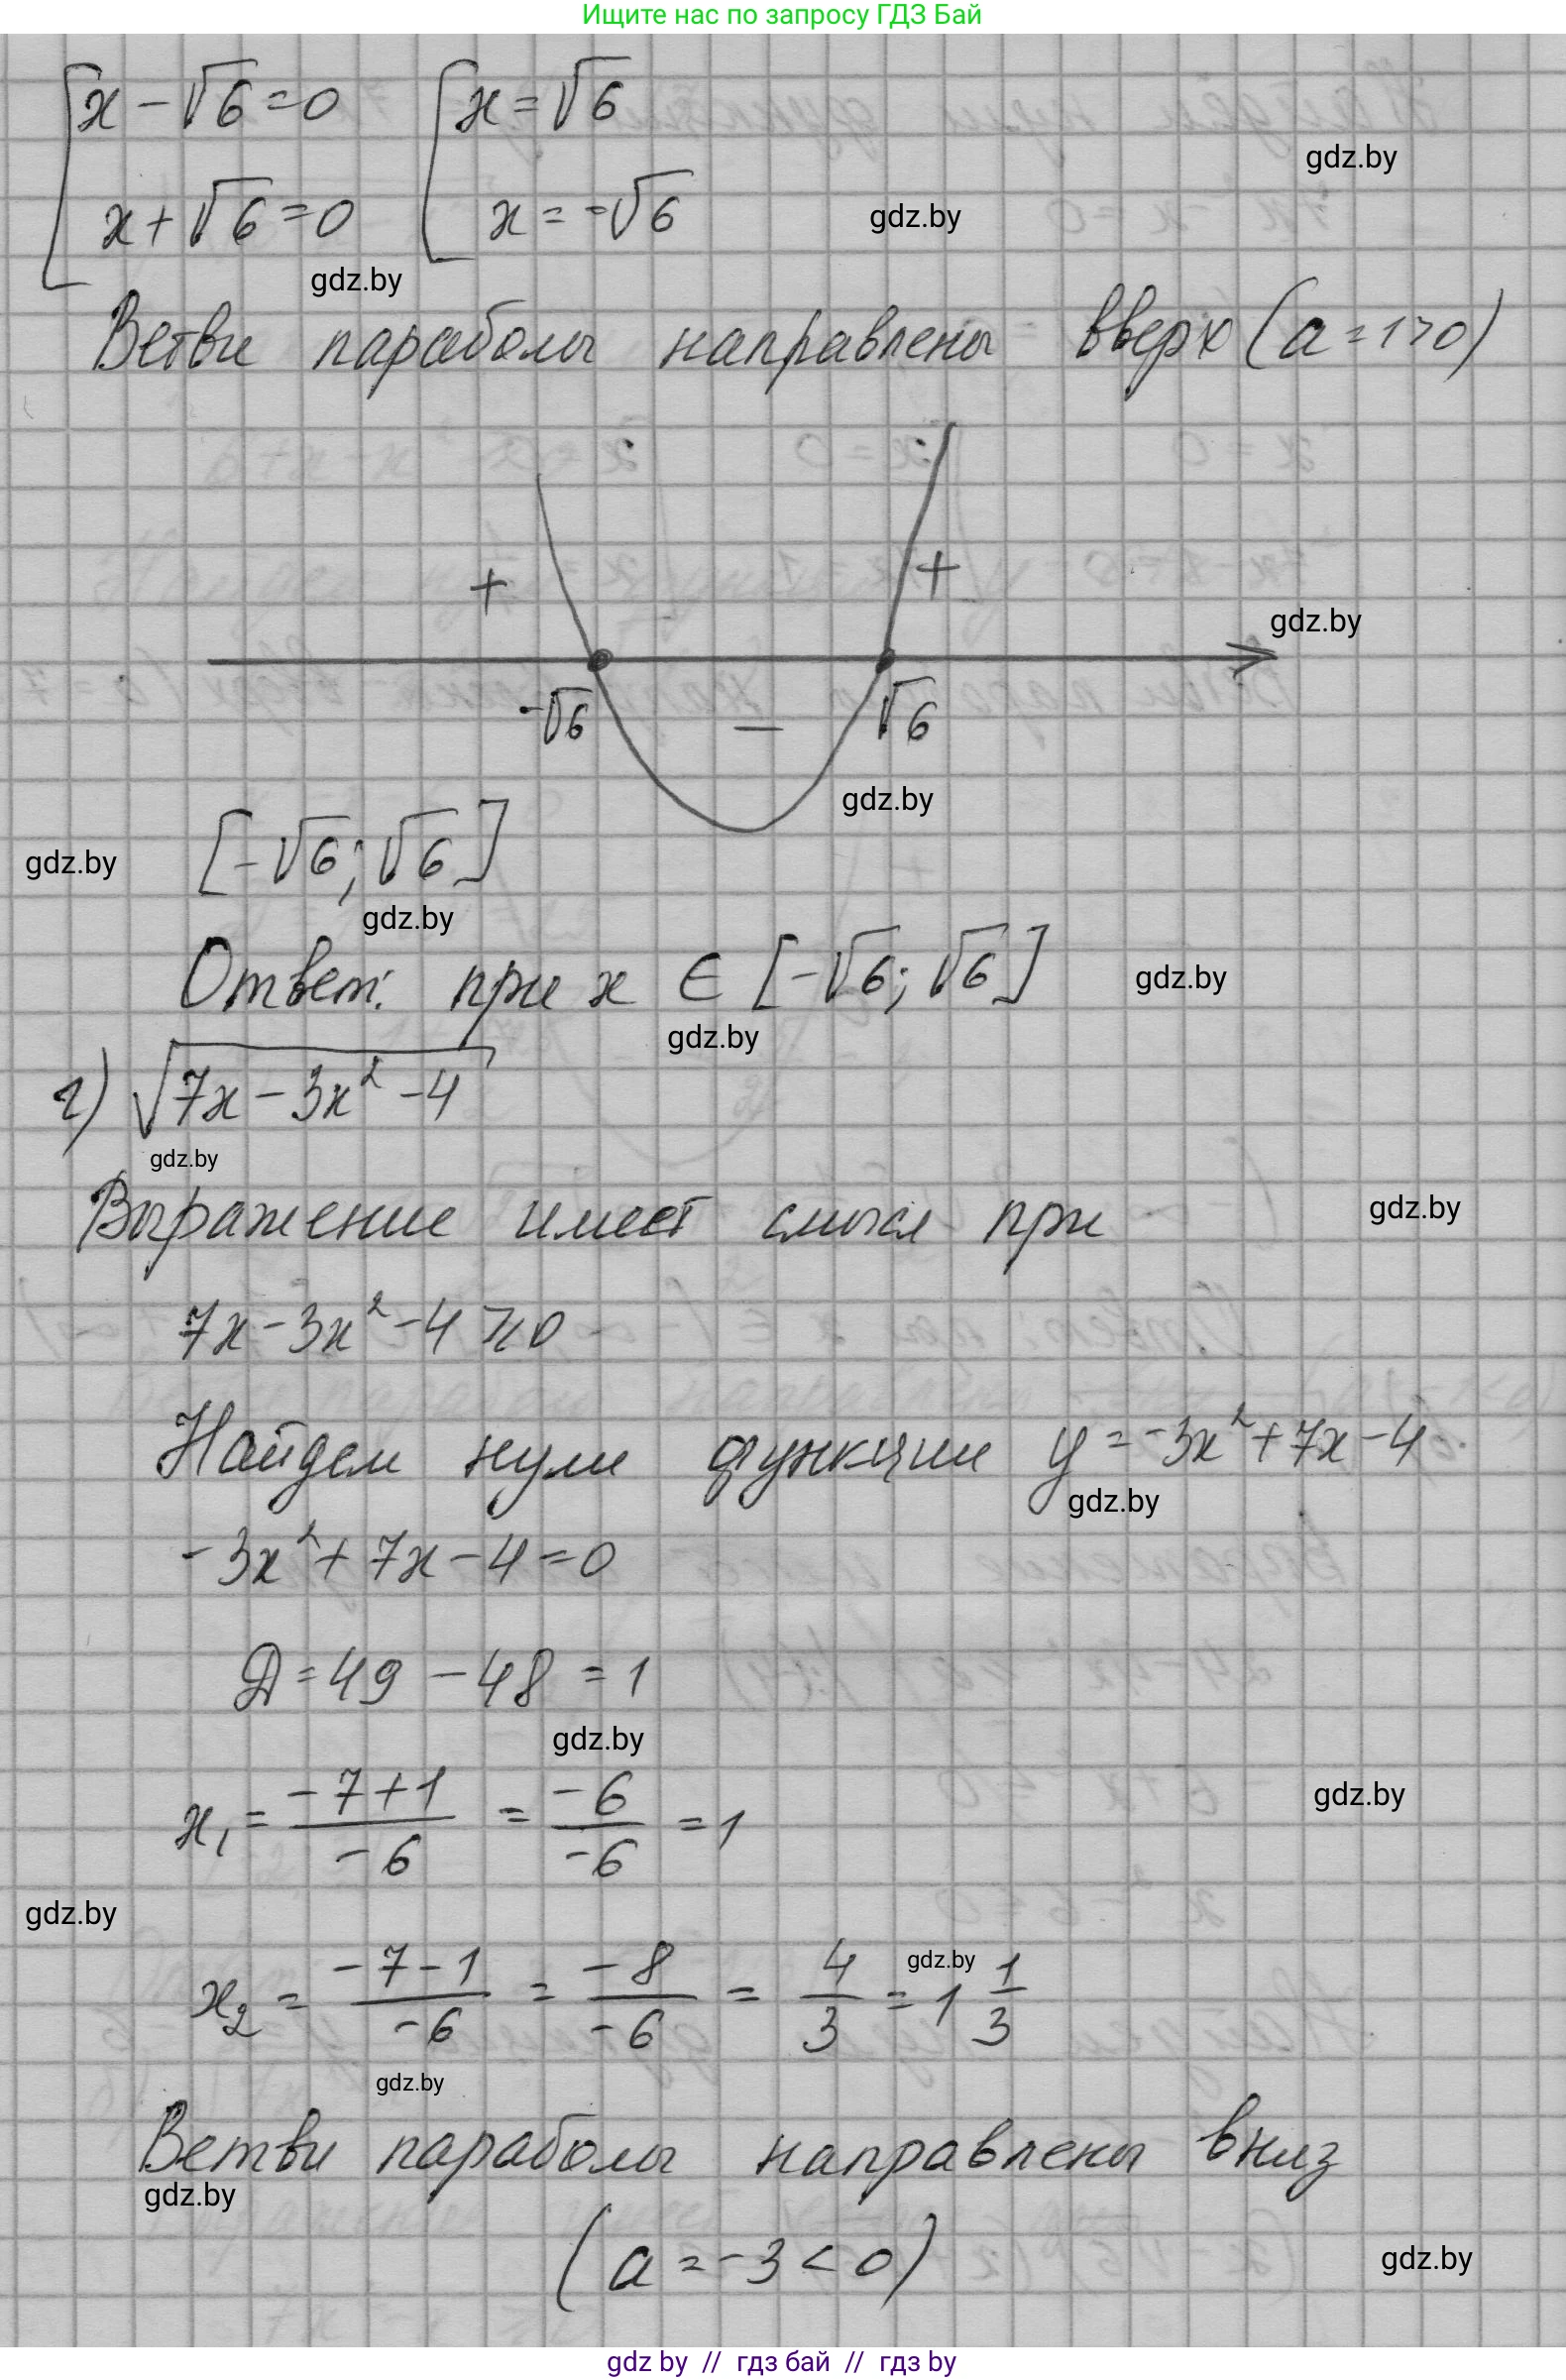 Ищите нас по запросу ГДЗ Бай
x - √6 = 0 x = √6
gdz.by
x + √6 = 0 x = -√6
gdz.by
gdz.by
Ветви параболы направлены вверх (a = 1 > 0)
+ +
gdz.by
-√6 − √6
gdz.by
[-√6; √6]
gdz.by
gdz.by
Ответ: при x ∈ [-√6; √6]
gdz.by
gdz.by
г) √(7x - 3x² - 4)
gdz.by
Выражение имеет смысл при
gdz.by
7x - 3x² - 4 ≥ 0
Найдем нули функции y = -3x² + 7x - 4
gdz.by
-3x² + 7x - 4 = 0
Д = 49 - 48 = 1
gdz.by
x₁ = (-7+1)/(-6) = (-6)/(-6) = 1
gdz.by
gdz.by
x₂ = (-7-1)/(-6) = (-8)/(-6) = 4/3 = 1 1/3
gdz.by
gdz.by
Ветви параболы направлены вниз
gdz.by
(a = -3 < 0)
gdz.by
gdz by // гдз бай // гдз by